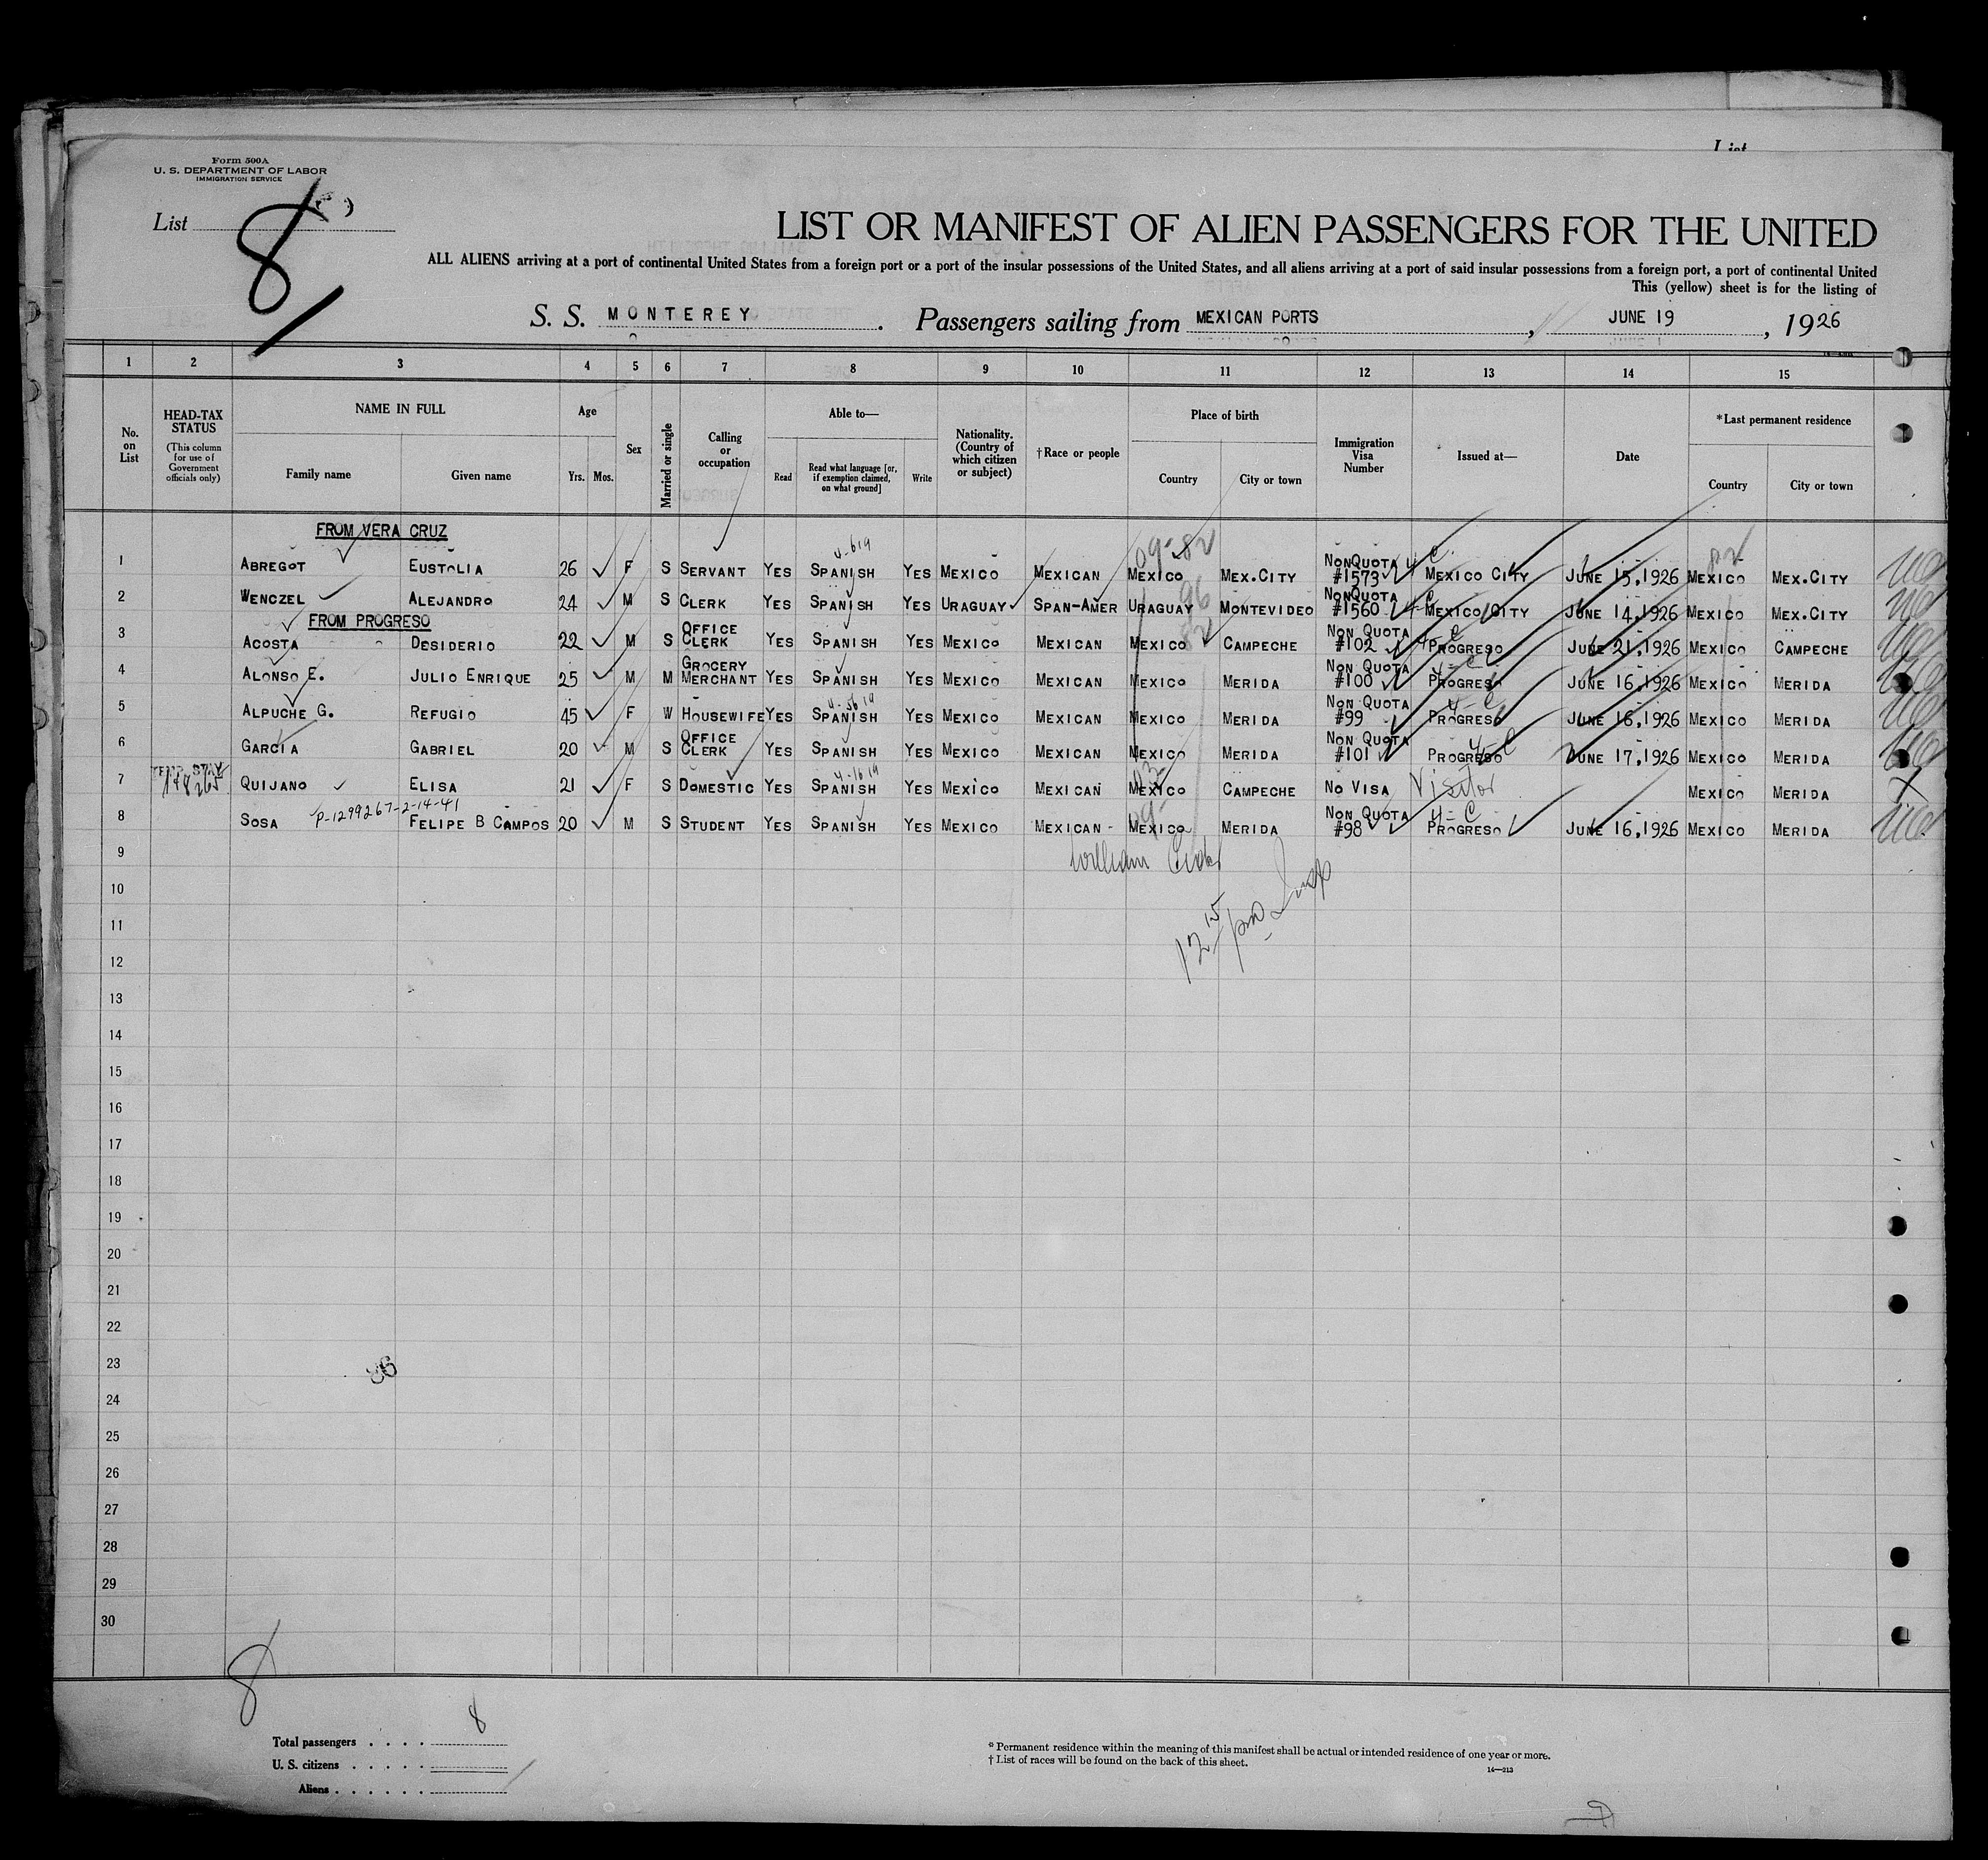 Form 500A
U. S. DEPARTMENT OF LABOR
IMMIGRATION SERVICE
List
List 8
LIST OR MANIFEST OF ALIEN PASSENGERS FOR THE UNITED
ALL ALIENS arriving at a port of continental United States from a foreign port or a port of the insular possessions of the United States, and all aliens arriving at a port of said insular possessions from a foreign port, a port of continental United
This (yellow) sheet is for the listing of
S. S. MONTEREY. Passengers sailing from MEXICAN PORTS, JUNE 19, 1926
1 2 3 4 5 6 7 8 9 10 11 12 13 14 15
No. on List
HEAD-TAX STATUS
(This column for use of Government officials only)
NAME IN FULL
Family name Given name
Age
Yrs. Mos.
Sex
Married or single
Calling or occupation
Able to—
Read Read what language [or, if exemption claimed, on what ground] Write
Nationality. (Country of which citizen or subject)
†Race or people
Place of birth
Country City or town
Immigration Visa Number
Issued at—
Date
*Last permanent residence
Country City or town
FROM VERA CRUZ
1 ABREGOT EUSTOLIA 26 F S SERVANT YES SPANISH YES MEXICO MEXICAN MEXICO MEX.CITY NONQUOTA #1573 MEXICO CITY JUNE 15,1926 MEXICO MEX.CITY
2 WENCZEL ALEJANDRO 24 M S CLERK YES SPANISH YES URAGUAY SPAN-AMER URAGUAY MONTEVIDEO NONQUOTA #1560 MEXICO CITY JUNE 14,1926 MEXICO MEX.CITY
FROM PROGRESO
3 ACOSTA DESIDERIO 22 M S OFFICE CLERK YES SPANISH YES MEXICO MEXICAN MEXICO CAMPECHE NON QUOTA #102 PROGRESO JUNE 21,1926 MEXICO CAMPECHE
4 ALONSO E. JULIO ENRIQUE 25 M M GROCERY MERCHANT YES SPANISH YES MEXICO MEXICAN MEXICO MERIDA NON QUOTA #100 PROGRESO JUNE 16,1926 MEXICO MERIDA
5 ALPUCHE G. REFUGIO 45 F W HOUSEWIFE YES SPANISH YES MEXICO MEXICAN MEXICO MERIDA NON QUOTA #99 4-C PROGRESO JUNE 16,1926 MEXICO MERIDA
6 GARCIA GABRIEL 20 M S OFFICE CLERK YES SPANISH YES MEXICO MEXICAN MEXICO MERIDA NON QUOTA #101 4-C PROGRESO JUNE 17,1926 MEXICO MERIDA
7 TEMP. STAY QUIJANO ELISA 21 F S DOMESTIC YES SPANISH YES MEXICO MEXICAN MEXICO CAMPECHE NO VISA Visitor MEXICO MERIDA
8 SOSA P-1299267-2-14-41 FELIPE B CAMPOS 20 M S STUDENT YES SPANISH YES MEXICO MEXICAN MEXICO MERIDA NON QUOTA #98 4-C PROGRESO JUNE 16,1926 MEXICO MERIDA
9 William
10
11
12
13
14
15
16
17
18
19
20
21
22
23
24
25
26
27
28
29
30
8
Total passengers . . . . 8
U. S. citizens . . . . .
Aliens . . . . . .
* Permanent residence within the meaning of this manifest shall be actual or intended residence of one year or more.
† List of races will be found on the back of this sheet.
14—213